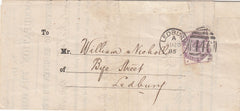 To
LEDBURY
A
85
Mr. William Nichol
of Bye Street
Ledbury